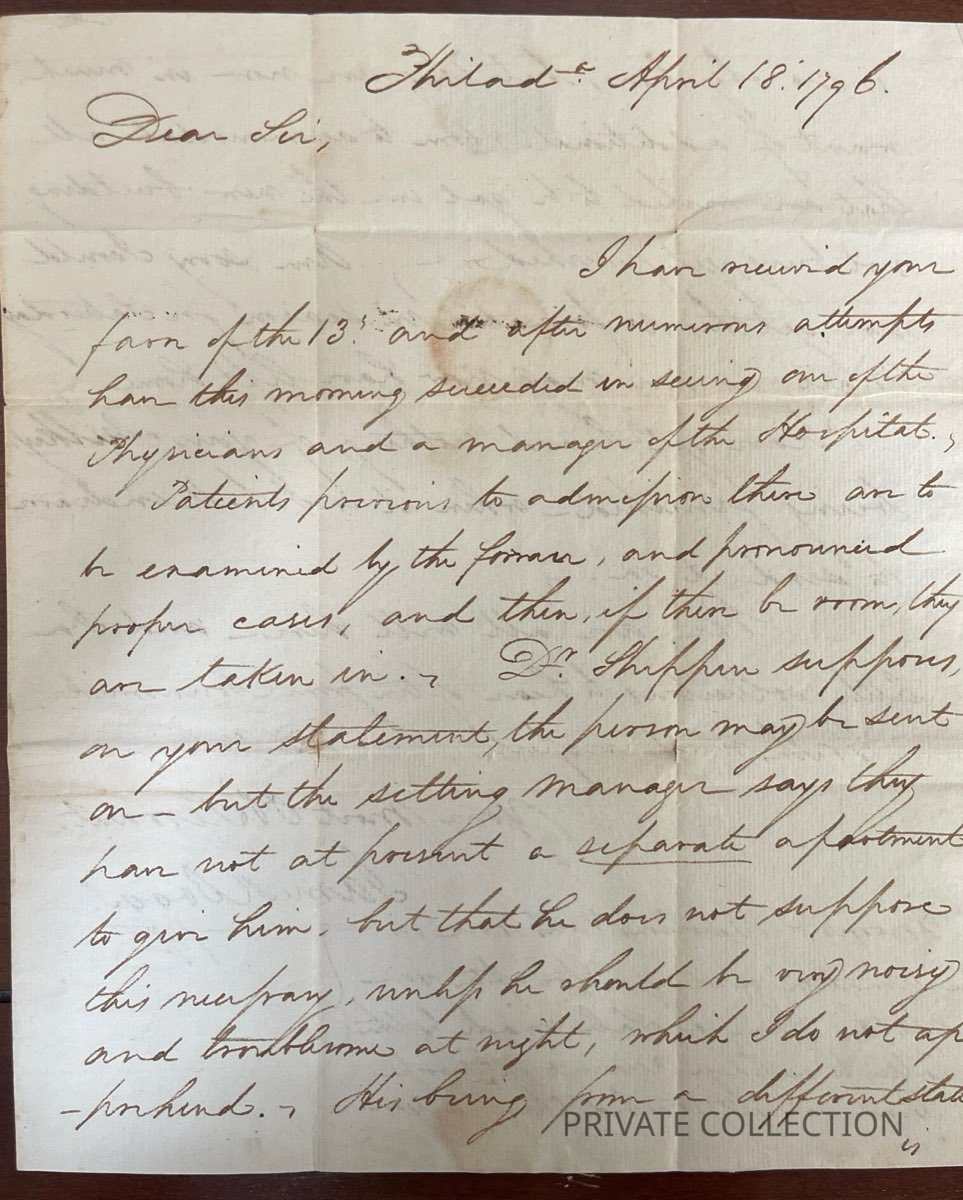 Philad.ª April 18. 1796.
Dear Sir,
I have received your
favor of the 13.ᵗ and after numerous attempts
have this morning succeeded in seeing one of the
Physicians and a manager of the Hospital.
Patients previous to admission there are to
be examined by the former, and pronounced
proper cases, and then, if there be room, they
are taken in. Dr. Shippen supposes,
on your statement, the person may be sent
on – but the setting manager says they
have not at present a separate apartment
to give him. but that he does not suppose
this necessary, unless he should be very noisy
and troublesome at night, which I do not ap
-prehend. His being from a different state
is
PRIVATE COLLECTION